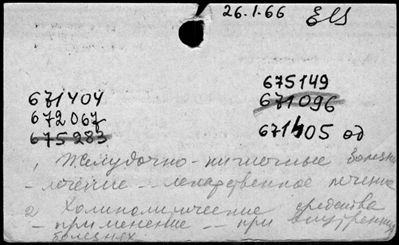 26.1.66
675149
671404
671096
672067
675283
671405 од
1, Желудочно-кишечные болезни
- лечение - лекарственное лечение
2) Холинолитические средства
- применение - при внутренних
болезнях